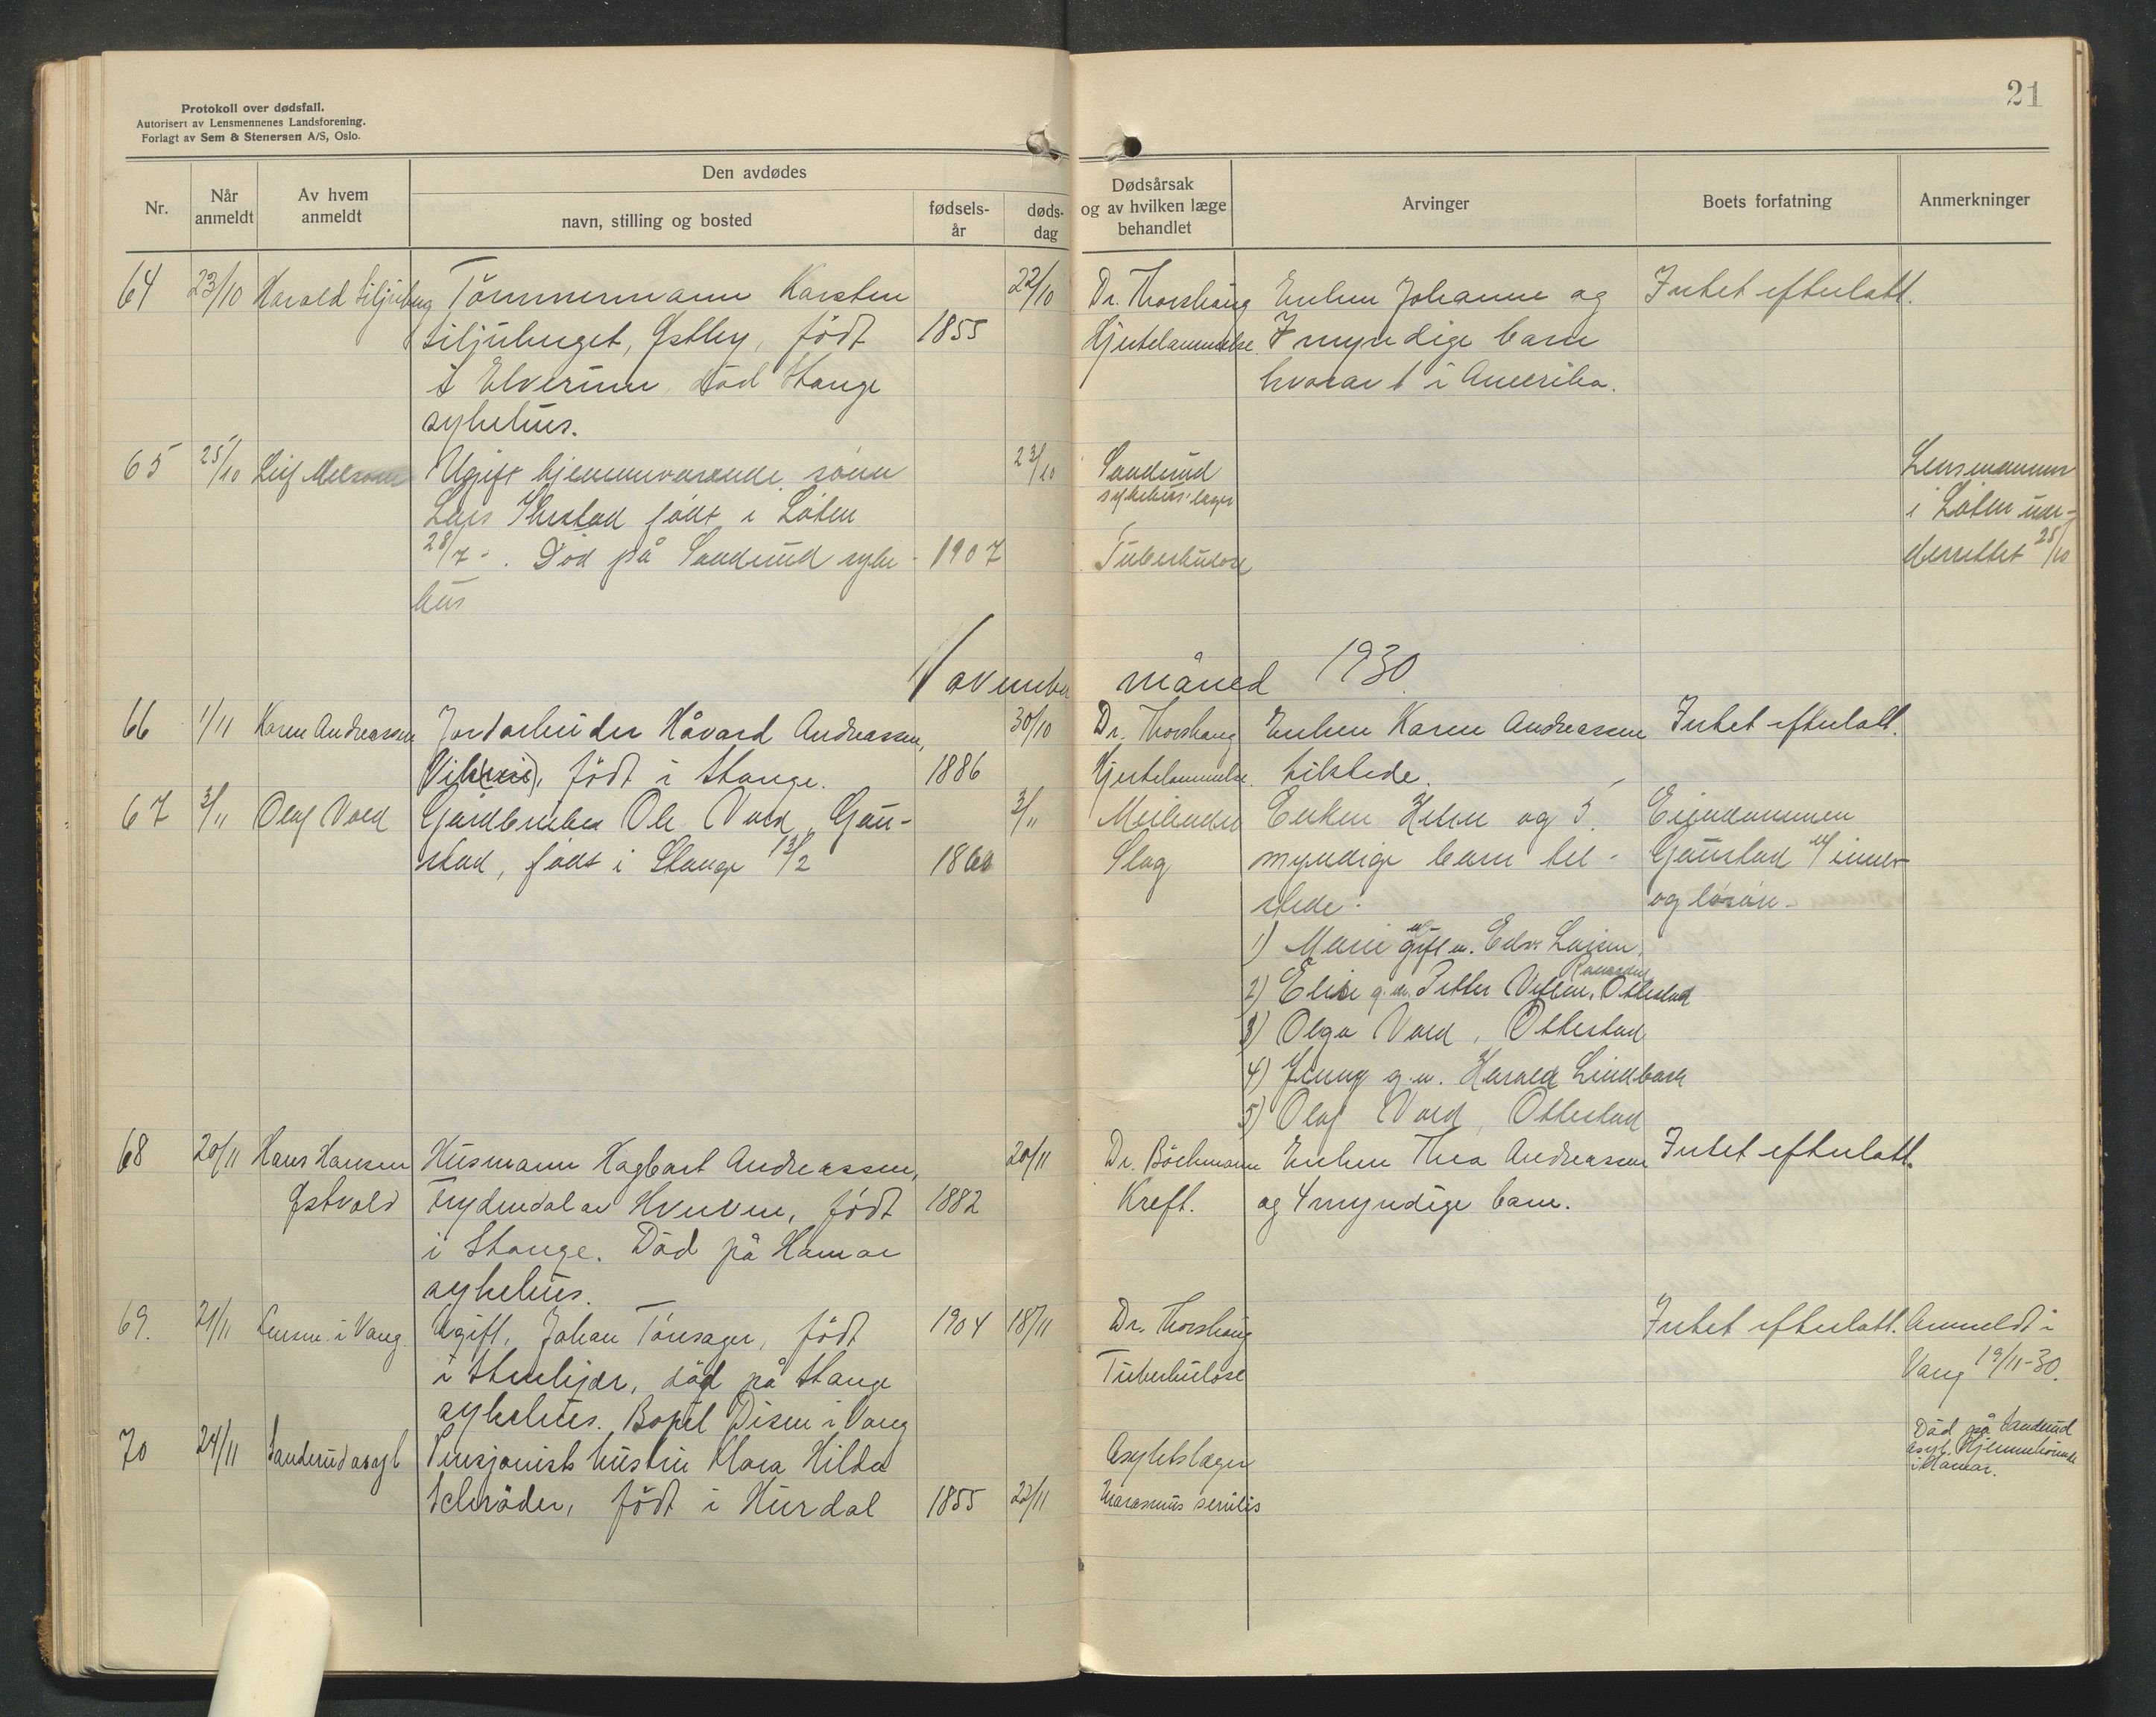 21
Protokoll over dødsfall.
Autorisert av Lensmennenes Landsforening.
Forlagt av Sem & Stenersen A/S, Oslo.
Nr.
Når anmeldt
Av hvem anmeldt
Den avdødes
navn, stilling og bosted
fødselsår
dødsdag
Dødsårsak og av hvilken læge behandlet
Arvinger
Boets forfatning
Anmerkninger
64 23/10 Harald Tømmermann Karsten 22/10 Dr. Thorshaug Enken Johanne og Intet efterlatt.
Østby, født 1855 Hjertelammelse. 7 myndige barn
i Elverum, død Stange hvorav 1 i Amerika.
sykehus.
65 25/10 Leif Ugift hjemmeværende sønn 23/10 Sanderud Lensmannen
Lars født i Löten sykehus læger i Löten un-
28/7 - . Død på Sanderud syke- 1907 Tuberkulose derrettet 25/10
hus
November måned 1930.
66 1/11 Karen Andreassen Jordarbeider Håvard Andreassen, 30/10 Dr. Thorshaug Enken Karen Andreassen Intet efterlatt.
født i Stange. 1886 Hjertelammelse. tilstede.
67 3/11 Olaf Vold Gårdbruker Ole Vold, Gau- 3/11 Enken Helene og 5 Eiendommen
stad, født i Stange 13/2 1860 Slag myndige barn til- Gaustad m/ innbo
stede: og løsøre.
1) Marie gift m. Edv. Larsen.
2) Elise g.m. Petter Ottestad
3) Olga Vold, Ottestad
4) Jenny g.m. Harald Lindbæk
5) Olaf Vold, Ottestad
68 20/11 Hans Hansen Husmann Hagbart Andreassen, 20/11 Dr. Böckmann Enken Thea Andreassen Intet efterlatt.
Østvold Frydendal av Hverven, født 1882 Kreft. og 4 myndige barn.
i Stange. Död på Hamar
sykehus.
69. 21/11 Lensm. i Vang. Ugift, Johan Tönsager, født 1904 18/11 Dr. Thorshaug Intet efterlatt. Anmeldt i
i Stenkjær, död på Stange Tuberkulose Vang 19/11-30.
sykehus. Bopel Disen i Vang
70 24/11 Sanderud asyl Pensjonists hustru Klara Hilda Asylets læger Död på Sanderud
asyl. Hjemmehörende
i Hamar.
Schröder, født i Hurdal 1855 22/11 Marasmus senilis